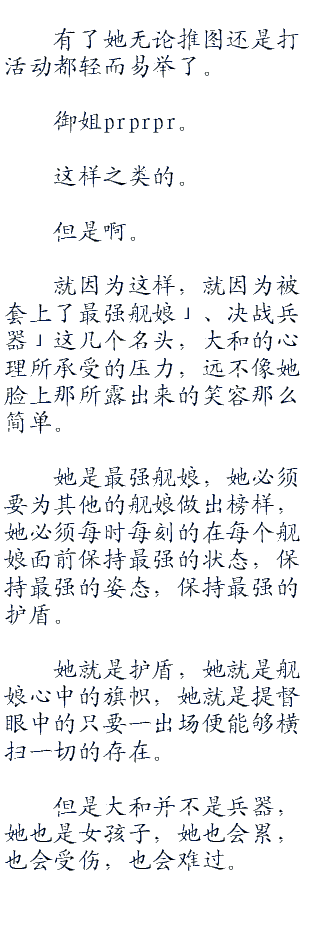 有了她无论推图还是打
活动都轻而易举了。
御姐prprpr。
这样之类的。
但是啊。
就因为这样，就因为被
套上了最强舰娘」、决战兵
器」这几个名头，大和的心
理所承受的压力，远不像她
脸上那所露出来的笑容那么
简单。
她是最强舰娘，她必须
要为其他的舰娘做出榜样，
她必须每时每刻的在每个舰
娘面前保持最强的状态，保
持最强的姿态，保持最强的
护盾。
她就是护盾，她就是舰
娘心中的旗帜，她就是提督
眼中的只要一出场便能够横
扫一切的存在。
但是大和并不是兵器，
她也是女孩子，她也会累，
也会受伤，也会难过。